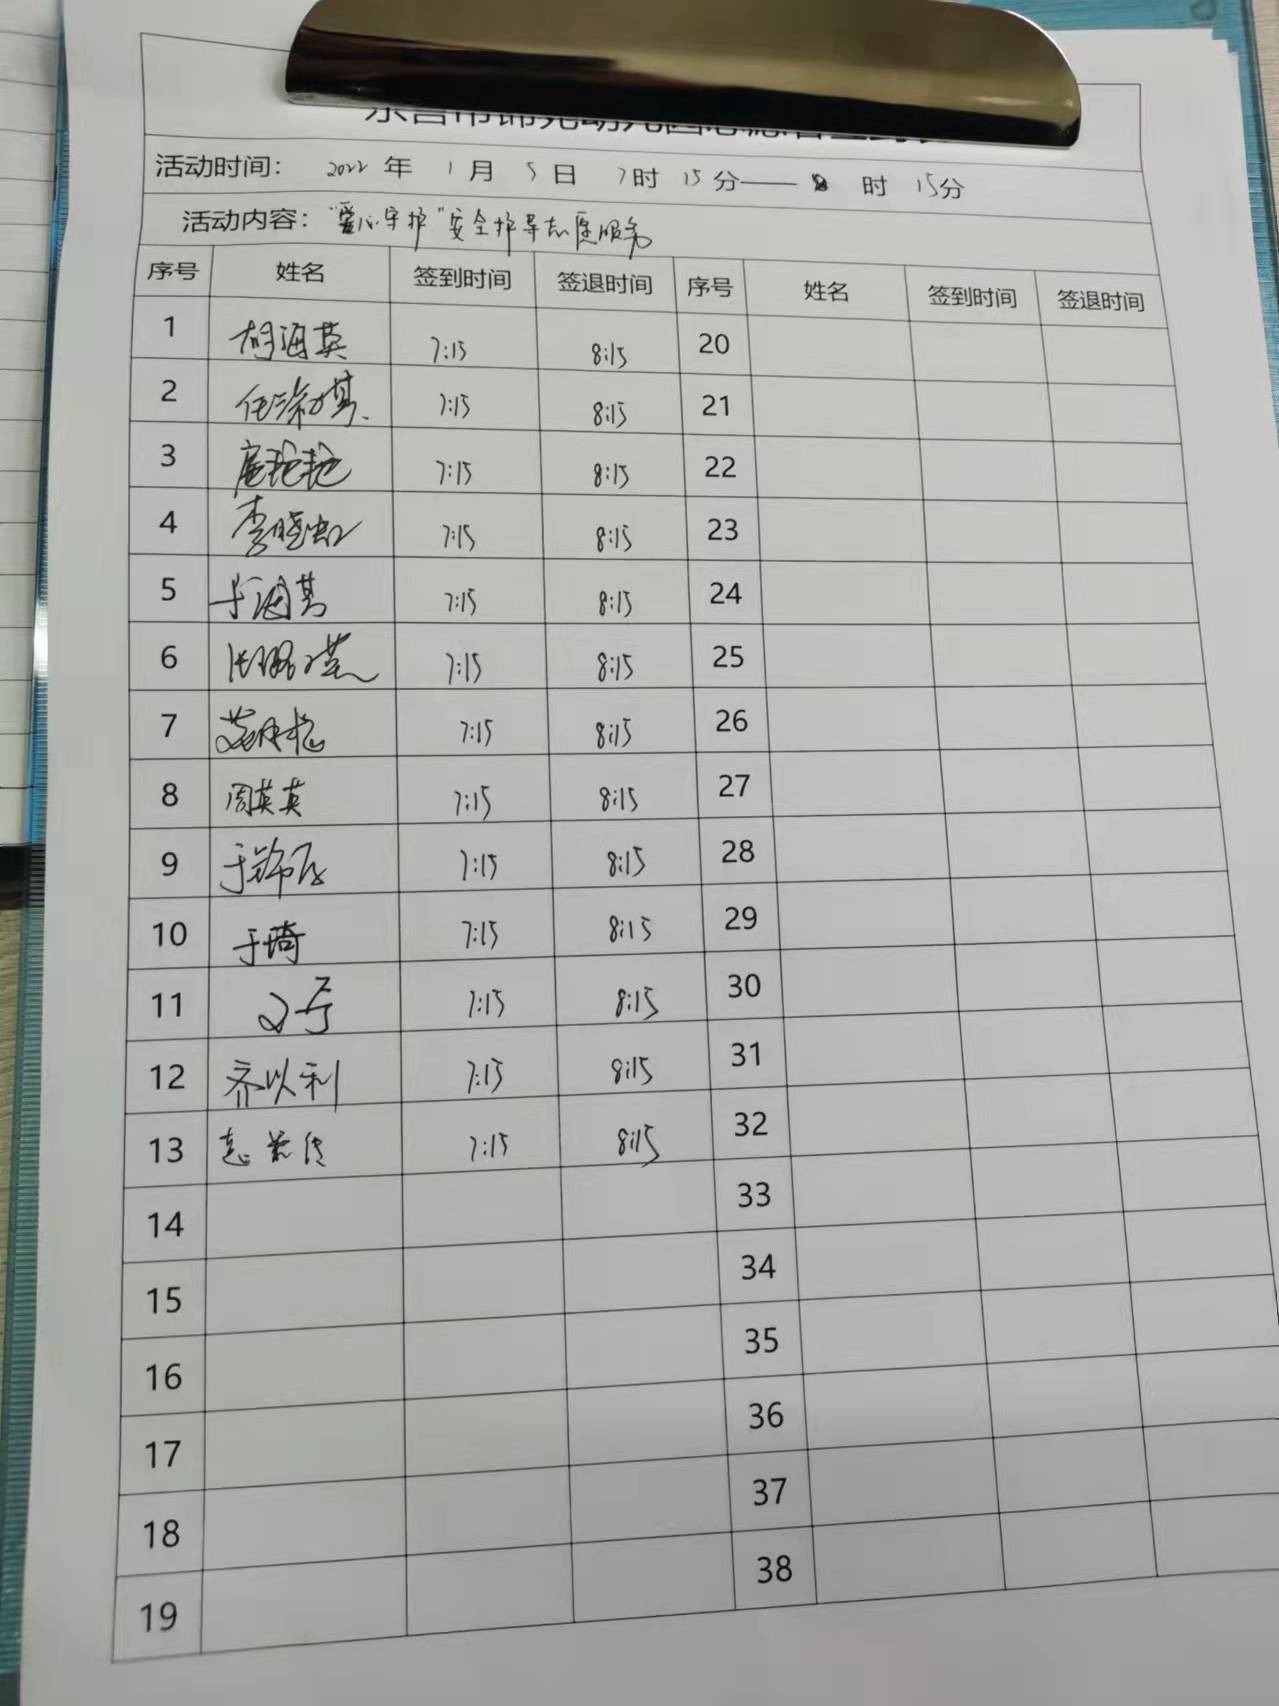 活动时间： 2022 年 1 月 5 日 7时 15分—— 8 时 15分
活动内容："爱心守护"安全护导志愿服务
序号 姓名 签到时间 签退时间 序号 姓名 签到时间 签退时间
1 胡海英 7:15 8:15 20
2 7:15 8:15 21
3 7:15 8:15 22
4 李晓虹 7:15 8:15 23
5 7:15 8:15 24
6 7:15 8:15 25
7 7:15 8:15 26
8 周英英 7:15 8:15 27
9 7:15 8:15 28
10 于琦 7:15 8:15 29
11 7:15 8:15 30
12 齐以利 7:15 8:15 31
13 7:15 8:15 32
14 33
15 34
16 35
17 36
18 37
19 38